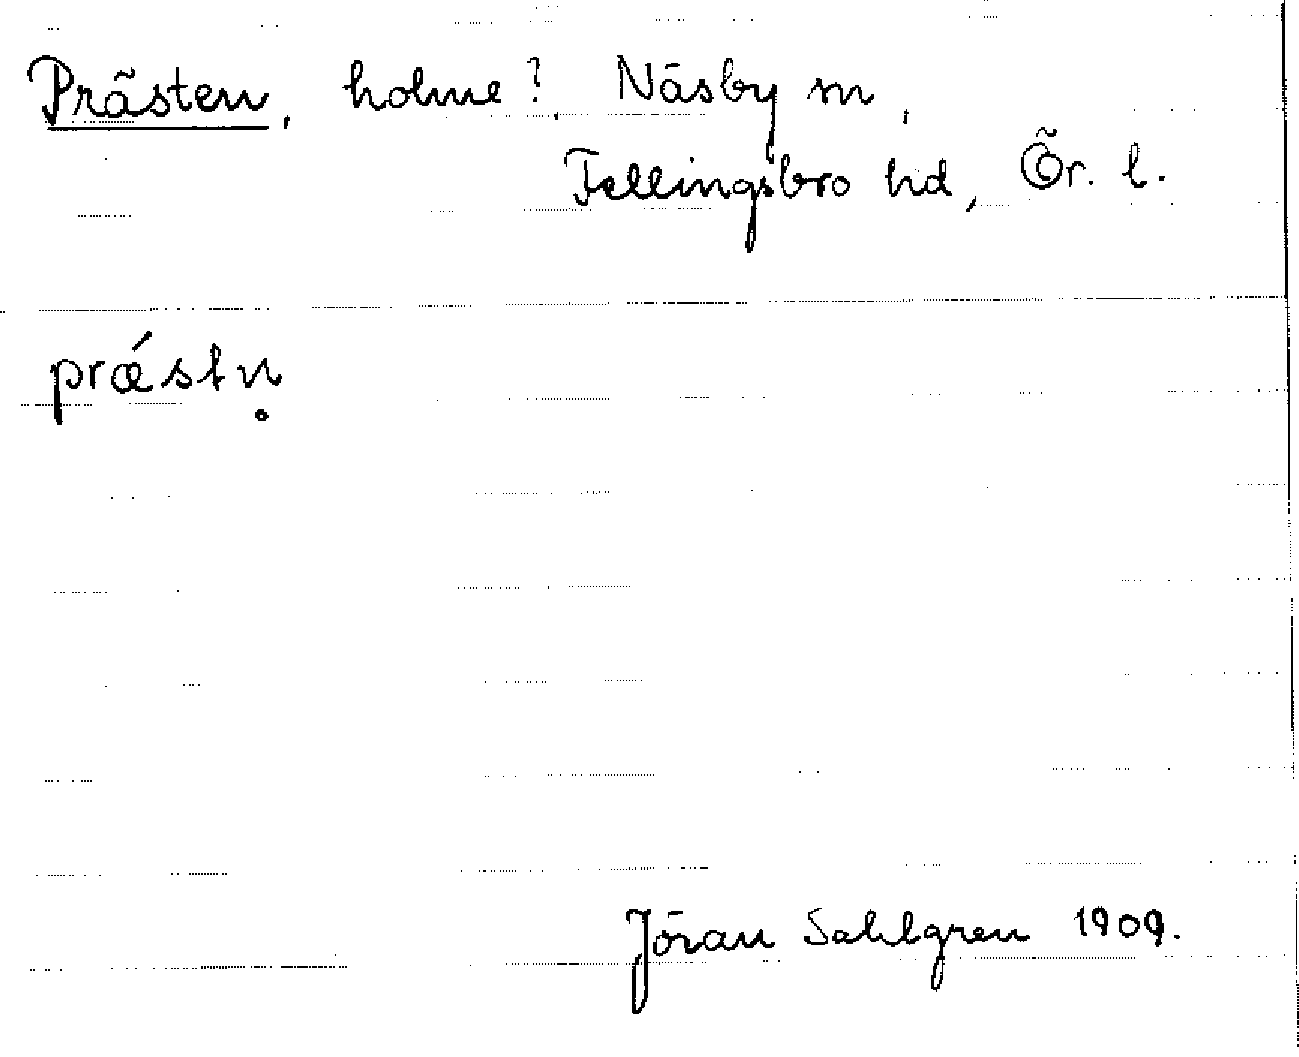 Prästen, holme? Näsby sn,
Fellingsbro hd, Ör. l.
prǽstn̥
Jöran Sahlgren 1909.